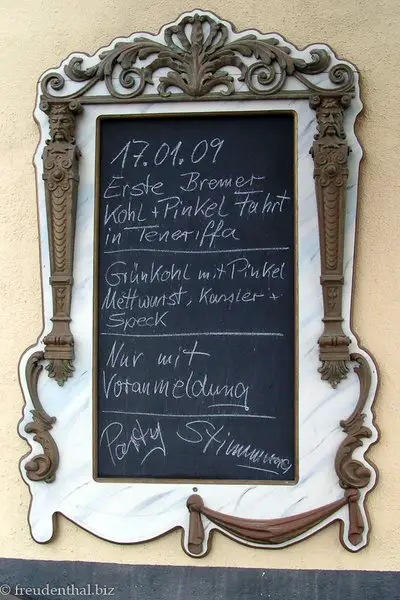 17.01.09
Erste Bremer
Kohl + Pinkel Fahrt
in Teneriffa
Grünkohl mit Pinkel
Mettwurst, Kassler +
Speck
Nur mit
Voranmeldung
Party Stimmung
© freudenthal.biz